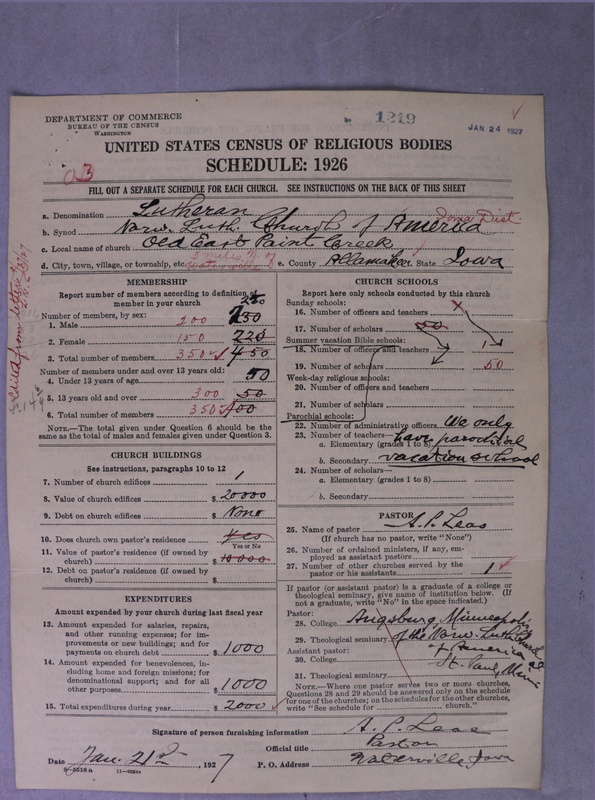 DEPARTMENT OF COMMERCE
BUREAU OF THE CENSUS
WASHINGTON
1219
JAN 24 1927
UNITED STATES CENSUS OF RELIGIOUS BODIES
SCHEDULE: 1926
FILL OUT A SEPARATE SCHEDULE FOR EACH CHURCH. SEE INSTRUCTIONS ON THE BACK OF THIS SHEET
a. Denomination Lutheran
b. Synod Norw. Luth. Church of America Iowa Dist.
c. Local name of church Old East Paint Creek
d. City, town, village, or township, etc. 5 miles N. of e. County Allamakee State Iowa
MEMBERSHIP
Report number of members according to definition of member in your church
Number of members, by sex:
1. Male 200 230
2. Female 150 220
3. Total number of members 350 450
Number of members under and over 13 years old:
4. Under 13 years of age 50
5. 13 years old and over 300 50
6. Total number of members 350 400
NOTE.—The total given under Question 6 should be the
same as the total of males and females given under Question 3.
CHURCH BUILDINGS
See instructions, paragraphs 10 to 12
7. Number of church edifices 1
8. Value of church edifices $ 20000
9. Debt on church edifices $ None
10. Does church own pastor's residence Yes
Yes or No
11. Value of pastor's residence (if owned by
church) $ 10000
12. Debt on pastor's residence (if owned by
church) $
EXPENDITURES
Amount expended by your church during last fiscal year
13. Amount expended for salaries, repairs,
and other running expenses; for im-
provements or new buildings; and for
payments on church debt $ 1000
14. Amount expended for benevolences, in-
cluding home and foreign missions; for
denominational support; and for all
other purposes $ 1000
15. Total expenditures during year $ 2000
CHURCH SCHOOLS
Report here only schools conducted by this church
Sunday schools:
16. Number of officers and teachers
17. Number of scholars 50
Summer vacation Bible schools:
18. Number of officers and teachers 1
19. Number of scholars 50
Week-day religious schools:
20. Number of officers and teachers
21. Number of scholars
Parochial schools:
22. Number of administrative officers We only
23. Number of teachers— have parochial
a. Elementary (grades 1 to 8)
b. Secondary vacation school
24. Number of scholars—
a. Elementary (grades 1 to 8)
b. Secondary
PASTOR
25. Name of pastor
(If church has no pastor, write "None")
26. Number of ordained ministers, if any, em-
ployed as assistant pastors
27. Number of other churches served by the
pastor or his assistants 1
If pastor (or assistant pastor) is a graduate of a college or
theological seminary, give name of institution below. (If
not a graduate, write "No" in the space indicated.)
Pastor:
28. College Augsburg, Minneapolis
29. Theological seminary of the Norw. Luth. Church
Assistant pastor: of America at
30. College St. Paul, Minn
31. Theological seminary
NOTE.—Where one pastor serves two or more churches,
Questions 28 and 29 should be answered only on the schedule
for one of the churches; on the schedules for the other churches,
write "See schedule for church."
Signature of person furnishing information
Official title Pastor
Date Jan. 21st, 1927 P. O. Address Waterville Iowa